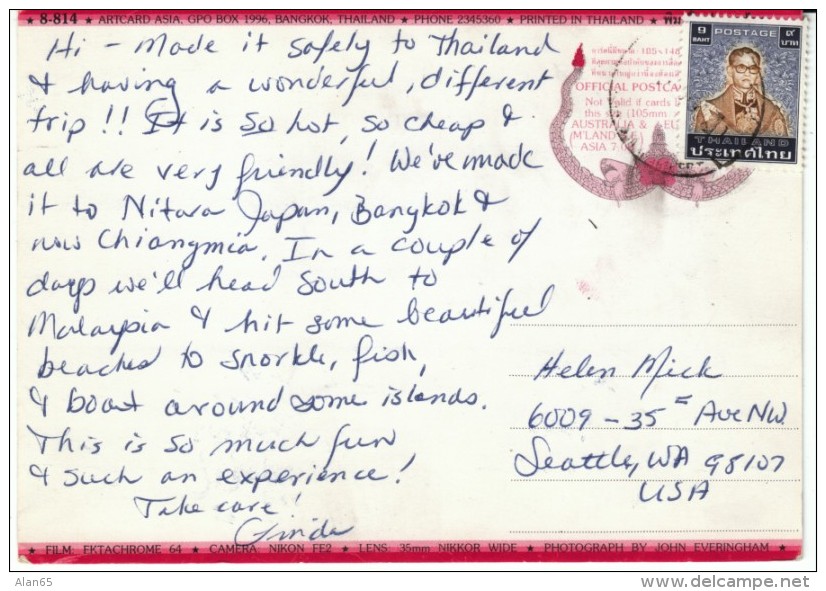 8-814 ★ ARTCARD ASIA, GPO BOX 1996, BANGKOK, THAILAND ★ PHONE 2345360 ★ PRINTED IN THAILAND ★
Hi - Made it safely to Thailand
& having a wonderful, different
trip!! It is so hot, so cheap &
all are very friendly! We've made
it to Nitara Japan, Bangkok &
now Chiangmia. In a couple of
days we'll head south to
Malaysia & hit some beautiful
beaches to snorkle, fish,
& boat around some islands.
This is so much fun
& such an experience!
Take care!
OFFICIAL POSTCA
Not valid if cards
this size (105mm
AUSTRALIA &
ASIA 7.0
9 BAHT POSTAGE ๙ บาท
THAILAND
ประเทศไทย
Helen Mick
6009 - 35th Ave NW.
Seattle, WA 98107
USA
★ FILM: EKTACHROME 64 ★ CAMERA NIKON FE2 ★ LENS: 35mm NIKKOR WIDE ★ PHOTOGRAPH BY JOHN EVERINGHAM ★
Alan65
delcampe.net